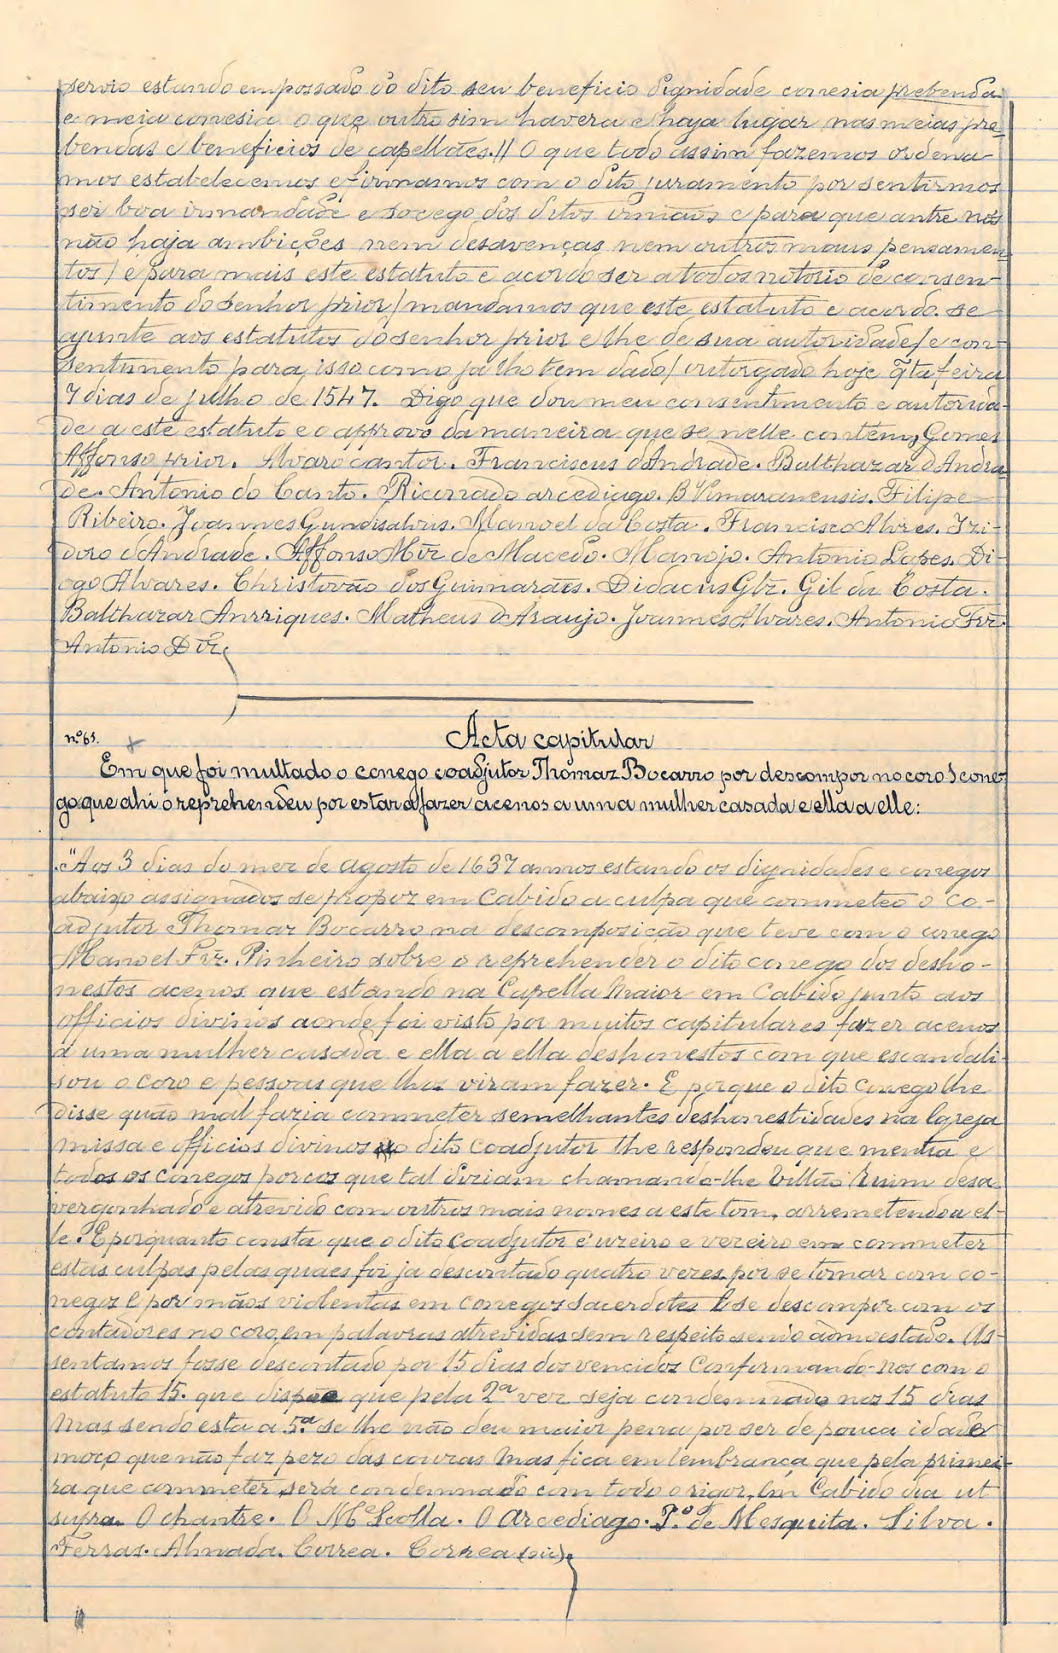 servio estando empossado do dito seu beneficio dignidade conesia prebenda
e meia conesia o que outro sim havera e haja lugar nas meias pre-
bendas e beneficios de capellães.// O que todo assim fazemos ordena-
mos estabelecemos e firmamos com o dito juramento por sentirmos
ser boa irmandade e socego dos ditos irmãos e para que antre nós
não haja ambições nem desavenças nem outros maus pensamen
tos/ e para mais este estatuto e acordo ser a todos notorio de consen-
timento do senhor prior/ mandamos que este estatuto e acordo se
ajunte aos estatutos do senhor prior e lhe de sua autoridade/ e con-
sentimento para isso como ja lho tem dado/ outorgado hoje q̃ta feira
7 dias de julho de 1547. Digo que dou meu consentimento e autorida-
de a este estatuto e o approvo da maneira que se nelle contém, Gomes
Affonso prior. Alvaro cantor. Franciscus d'Andrade. Balthazar d'Andra
de. Antonio do Canto. Ricorrado arcediago. B Vimaranensis. Filipe
Ribeiro. Joannes Gundisalvus. Manoel da Costa. Francisco Alvres. Izi-
doro d'Andrade. Affonso Mĩz de Macedo. Manojo. Antonio Lopes. Di-
ogo Alvares. Christovão dos Guimarães. Didacus Glz. Gil da Costa.
Balthazar Anrriques. Matheus d'Araujo. Joannes Alvares. Antonio Frz.
Antonio Diz.
nº 61. Acta capitular
Em que foi multado o conego coadjutor Thomaz Bocarro por descompor no coro 1 cone-
go que ahi o reprehendeu por estar a fazer acenos a uma mulher casada e ella a elle:
"Aos 3 dias do mez de agosto de 1637 annos estando os dignidades e conegos
abaixo assignados se propoz em Cabido a culpa que commeteo o Co-
adjutor Thomaz Bocarro na descomposição que teve com o conego
Manoel Frz. Pinheiro sobre o reprehender o dito conego dos desho-
nestos acenos que estando na Capella Maior em Cabido junto aos
officios divinos aonde foi visto por muitos capitulares fazer acenos
a uma mulher casada e ella a ella deshonestos com que escandali-
sou o coro e pessoas que lhos viram fazer. E porque o dito Conego lhe
disse quão mal fazia commeter semelhantes deshonestidades na Igreja
missa e officios divinos o dito coadjutor lhe respondeu que mentia e
todos os conegos porcos que tal diziam chamando-lhe Villão Ruim desa
vergonhado e atrevido com outros mais nomes a este tom, arremetendo a el-
le. E porquanto consta que o dito Coadjutor é uzeiro e vezeiro em commeter
estas culpas pelas quaes foi ja descontado quatro vezes por se tomar com co-
negos e por mãos violentas em conegos Sacerdotes e se descompor com os
contadores no coro, em palavras atrevidas sem respeito sendo admoestado. As-
sentamos fosse descontado por 15 dias dos vencidos Conformando-nos com o
estatuto 15. que dispõe que pela 2ª vez seja condemnado nos 15 dias
Mas sendo esta a 5ª se lhe não deu maior pena por ser de pouca idade
moço que não faz pezo das couzas Mas fica em lembrança que pela primei-
ra que commeter será condemnado com todo o rigor, Em Cabido dia ut
supra. O chantre. O Me Scolla. O Arcediago. P.º de Mesquita. Silva.
Ferras. Almada. Correa. Correa (sic).